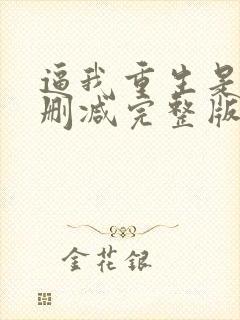 逼我重生是
删减完整版
金花银